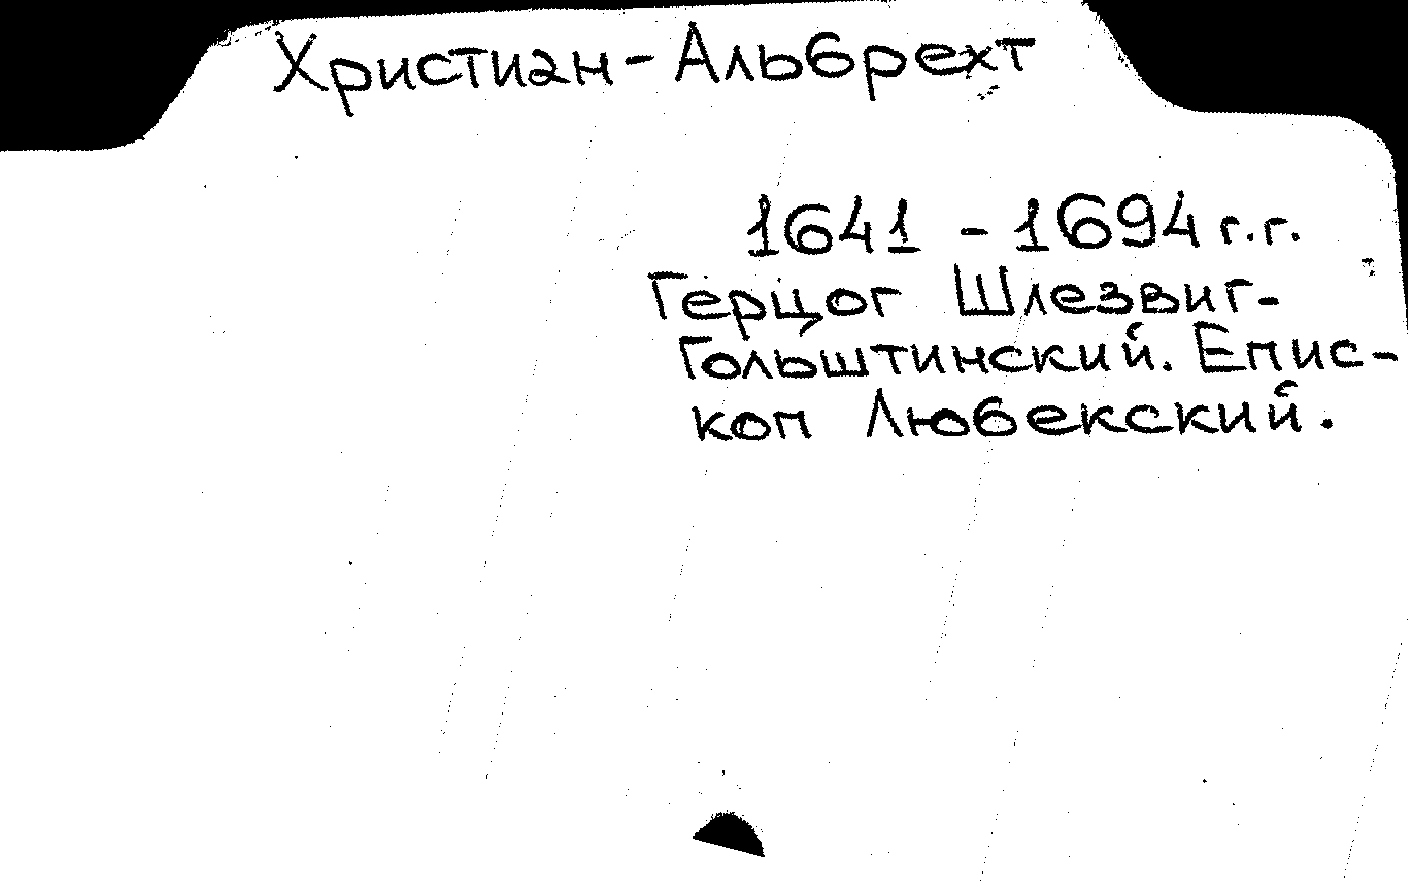 Христиан-Альбрехт
1641 - 1694 г.г.
Герцог Шлезвиг-
Гольштинский. Епис-
коп Любекский.